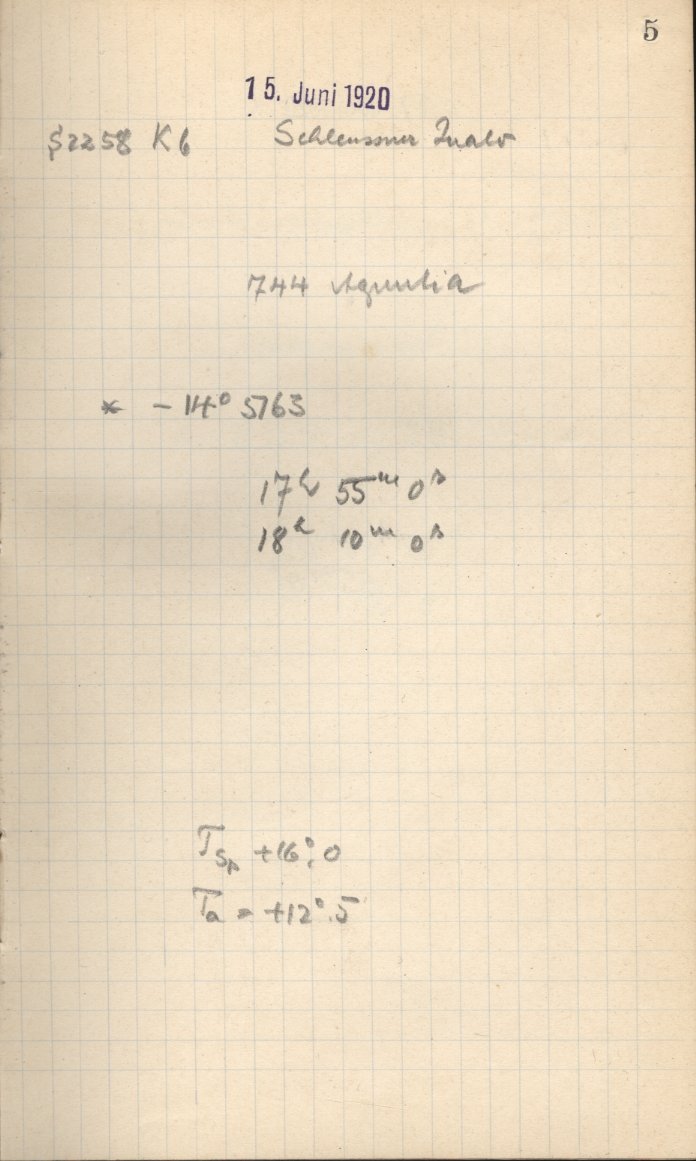 5
15. Juni 1920
S2258 K6 Schleussner
744 Aguntia
* -14° 5763
17h 55m 0s
18h 10m 0s
TSp +16°.0
Ta = +12°.5